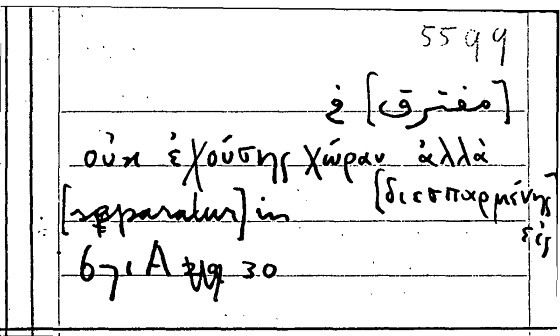 5599
[مفترق] في
οὐκ ἐχούσης χώραν ἀλλὰ
[διεσπαρμένης
[separatur] in εἰς
671 A 30